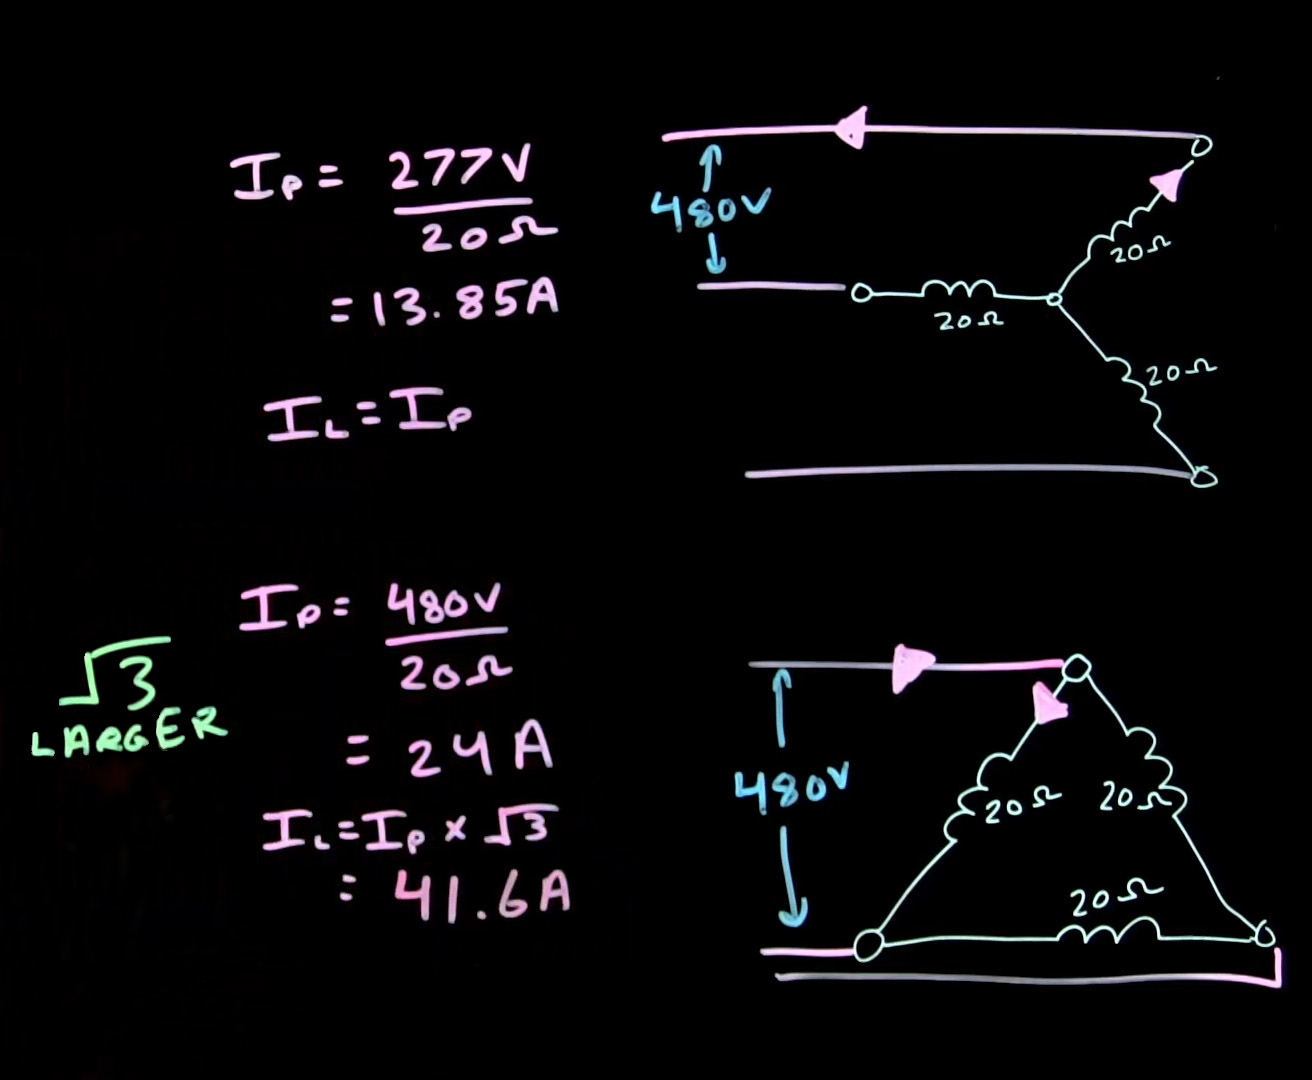 I_P = 277V
20Ω
= 13.85A
I_L = I_P
480V
20Ω
20Ω
20Ω
I_P = 480V
20Ω
= 24A
I_L = I_P x √3
= 41.6A
√3
LARGER
480V
20Ω
20Ω
20Ω